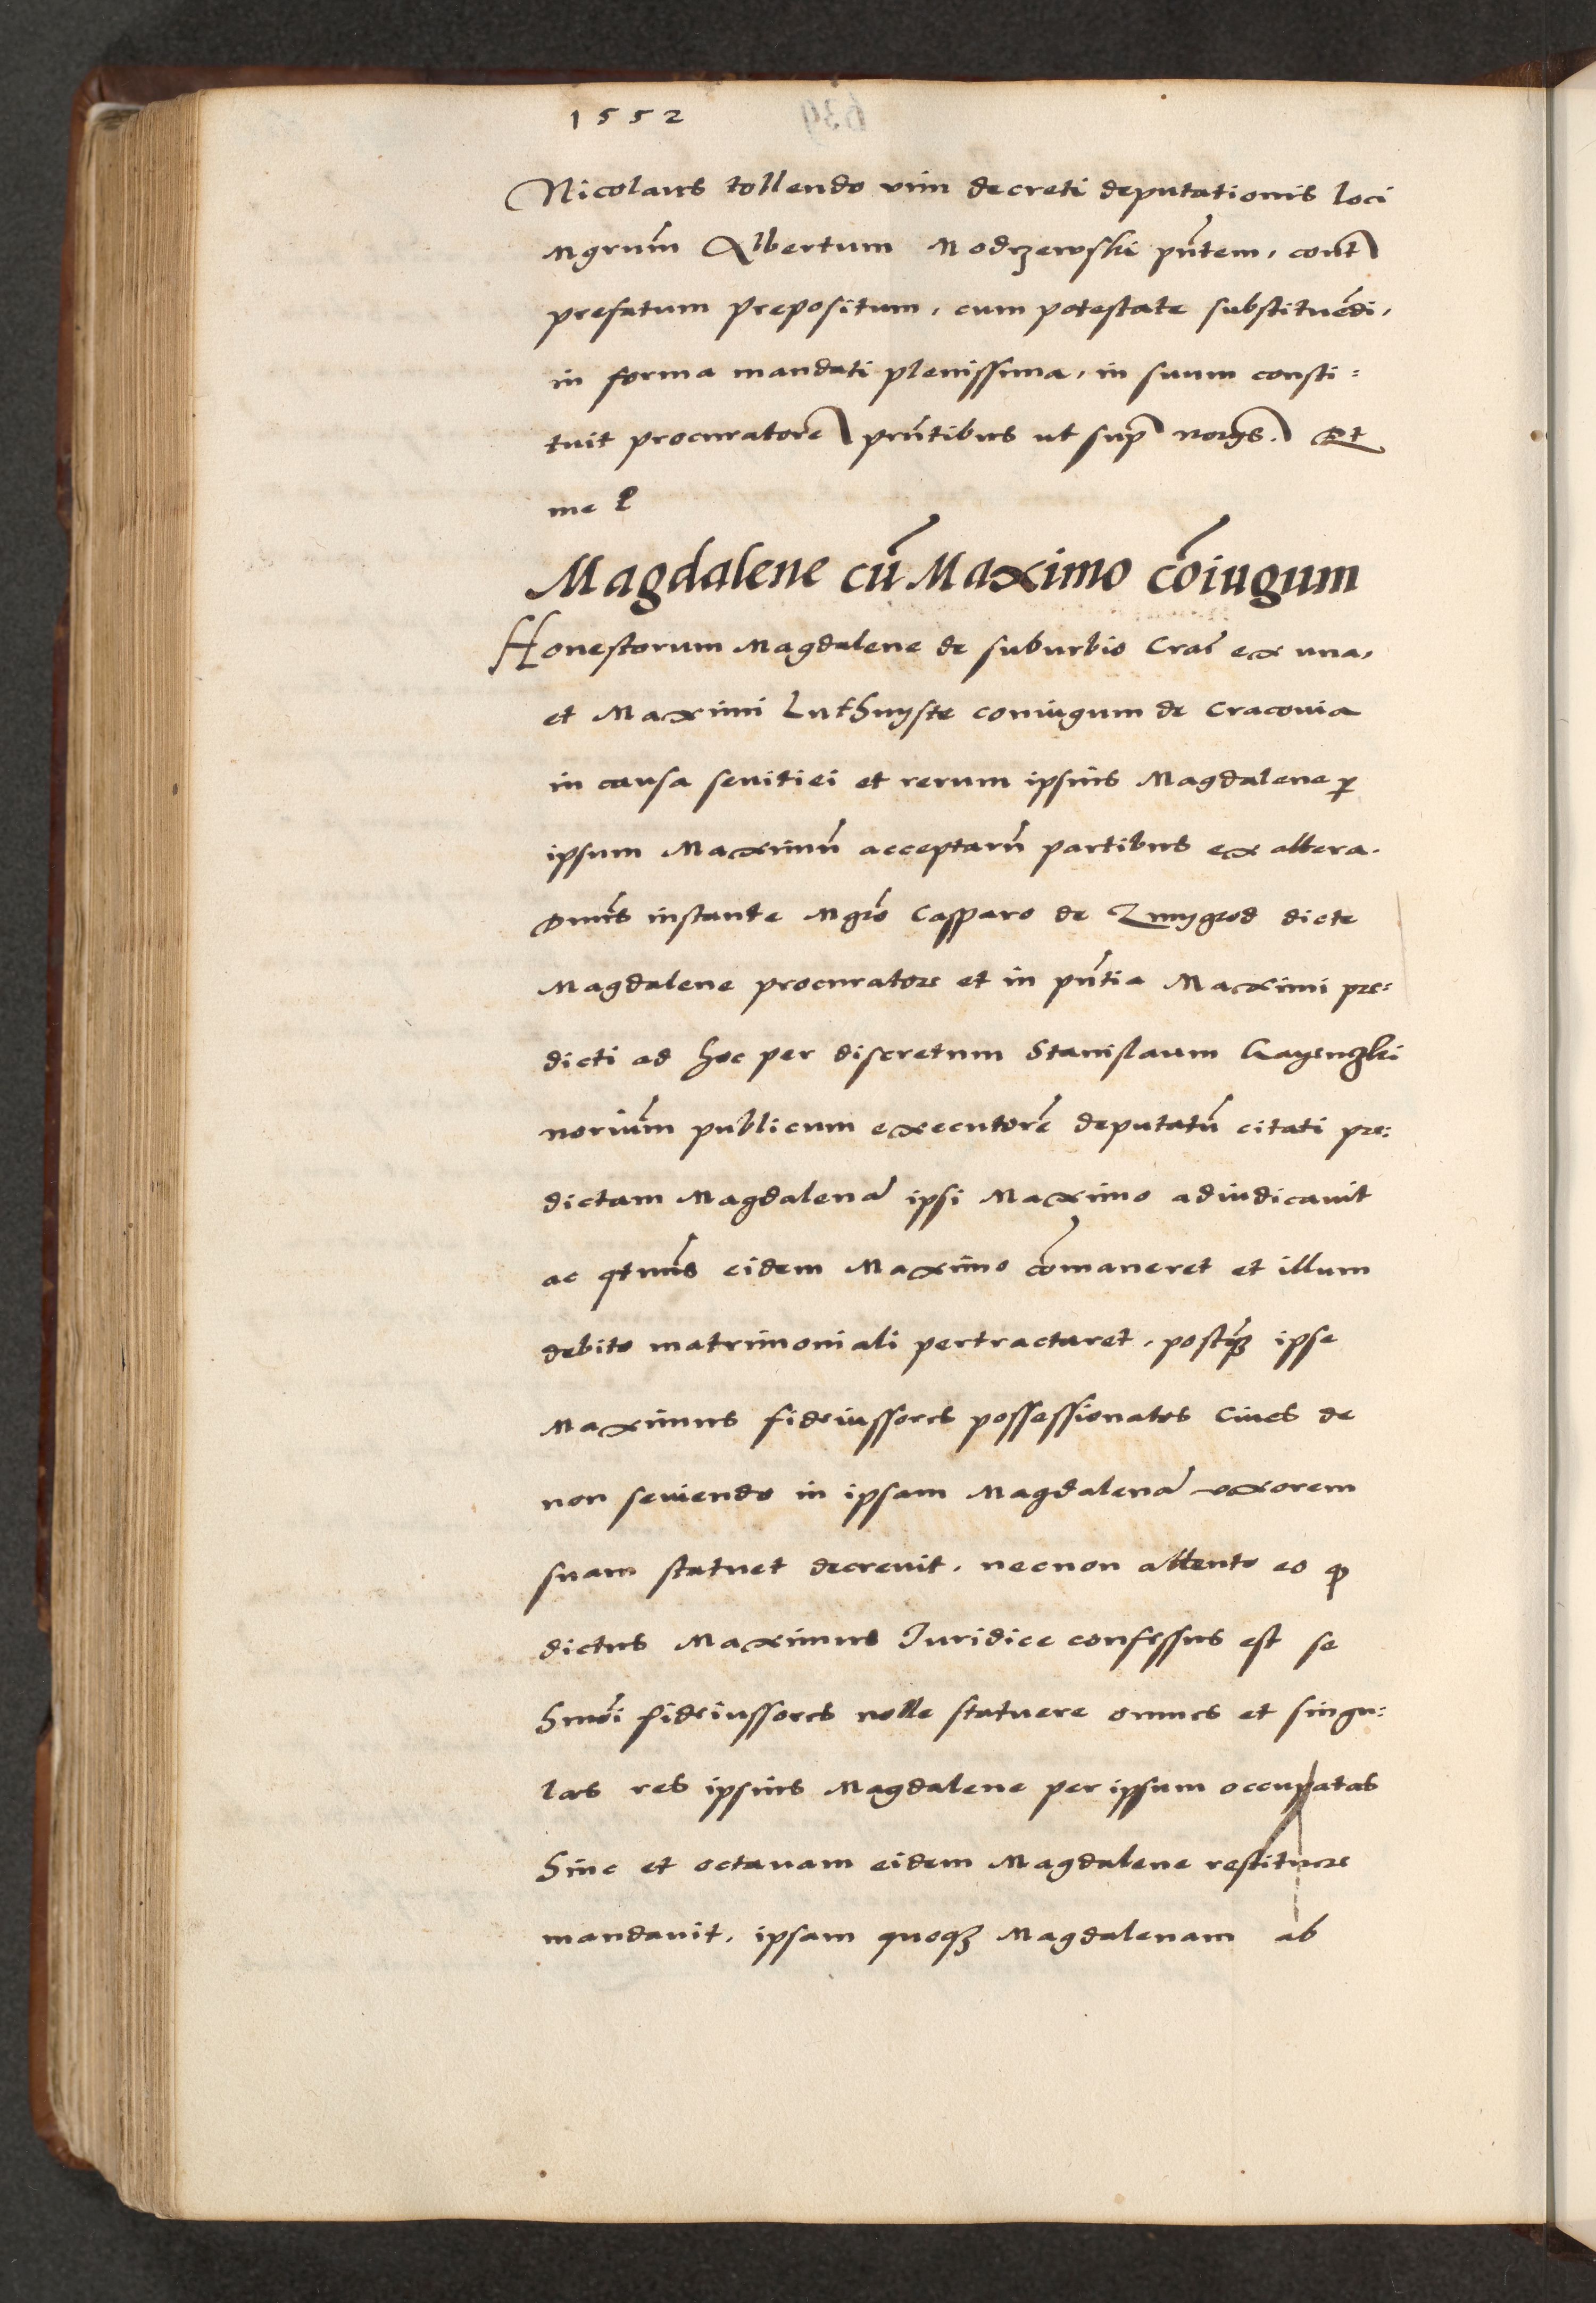 1552
Nicolaus tollendo vim decreti deputationis loci
Mgrum̃ Albertum Modrzewski pñtem, cont̃
prefatum prepositum, cum potestate substituẽdi,
in forma mandati plenissima, in suum consti=
tuit procuratorẽ pñtibus ut sup̃ norijs. Et
me
Magdalene cũ Maximo cõiugum
Honestorum Magdalene de suburbio Crac̃ ex una,
et Maximi coniugum de Cracouia
in causa seuitiei et rerum ipsius Magdalene p
ipsum Maximũ acceptarũ partibus ex altera.
Dnus̃ instante Mgrõ Casparo de Zmygrod dicte
Magdalene procuratore et in pñtia Maximi pre=
dicti ad hoc per discretum Stanislaum
noriũm publicum executorẽ deputatũ citati pre=
dictam Magdalenã ipsi Maximo adiudicauit
ac qtnus̃ eidem Maximo cõmaneret et illum
debito matrimoniali pertractaret, postq̃ ipse
Maximus fideiussores possessionatos Ciues de
non seuiendo in ipsam Magdalenã uxorem
suam statuet decreuit, necnon attento eo ꝙ
dictus Maximus Iuridice confessus est se
hmõi fideiussores nolle statuere omnes et singu=
las res ipsius Magdalene per ipsum occupatas
hinc et octauam eidem Magdalene restituere
mandauit, ipsam quoqꝫ Magdalenam ab